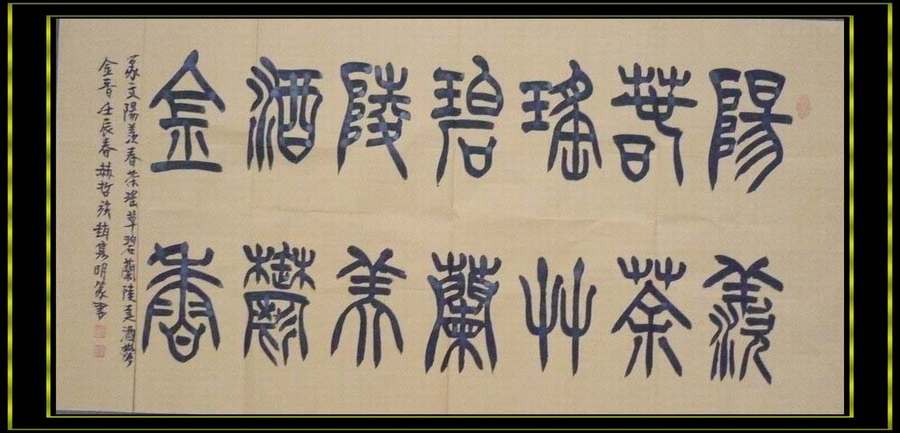 陽羨
春茶
瑤艸
碧蘭
陵美
酒鬱
金香
篆文陽羨春茶瑤草碧蘭陵美酒鬱
金香 壬辰春赫哲族趙明篆書